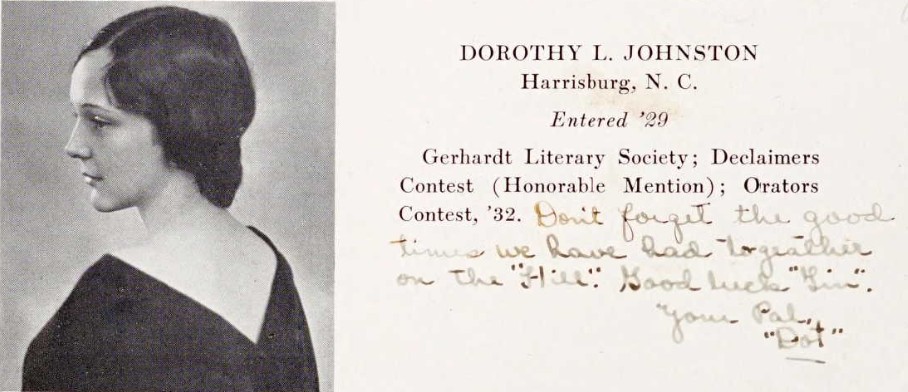 DOROTHY L. JOHNSTON
Harrisburg, N. C.
Entered '29
Gerhardt Literary Society; Declaimers
Contest (Honorable Mention); Orators
Contest, '32. Don't forget the good
times we have had togeather
on the "Hill". Good luck "Lin".
Your Pal,
"Dot"